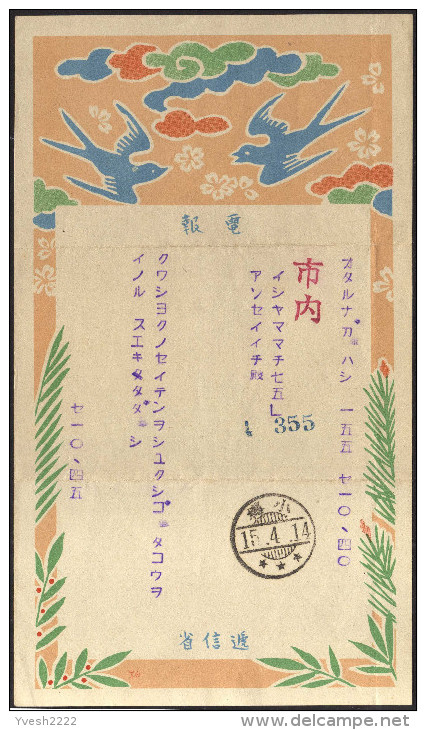 電報
オタルナガハシ 一五五 セ一〇、四〇
市内
イシヤママチ七五
アンセイイチ殿
355
クワシヨクノセイテンヲシユクシゴタコウヲ
イノル スエキタダシ
セ一〇、四五
小樽
15.4.14
遞信省
Yvesh2222
delcampe.net